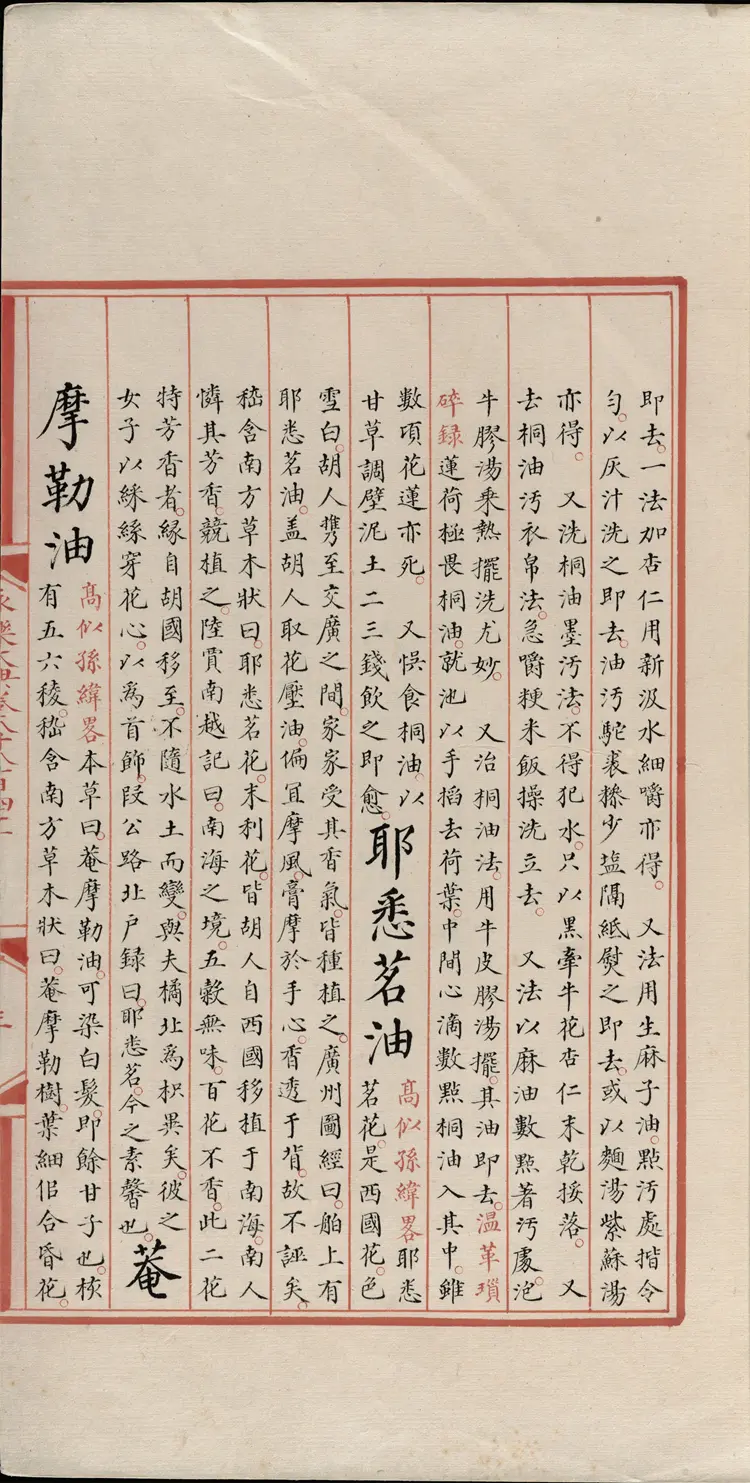 即去。一法加杏仁用新汲水細嚼亦得。 又法用生麻子油。點汚處揩令
勻。以灰汁洗之即去。油汚駝裘糝少塩隔紙熨之即去。或以麵湯紫蘇湯
亦得。 又洗桐油墨汚法。不得犯水。只以黑牽牛花杏仁末乾挼落。 又
去桐油汚衣帛法。急嚼粳米飯操洗立去。 又法以麻油數點著汚處。泡
牛膠湯乗熱擺洗尤妙。 又治桐油法。用牛皮膠湯擺。其油即去。溫革瑣
碎録蓮荷極畏桐油。就池以手搯去荷葉。中間心滴數點桐油入其中。雖
數頃花蓮亦死。 又悞食桐油。以
甘草調壁泥土二三錢飲之即愈。
耶悉茗油
髙似孫緯畧耶悉
茗花。是西國花。色
雪白。胡人携至交廣之間。家家受其香氣。皆種植之。廣州圖經曰。舶上有
耶悉茗油。盖胡人取花壓油。偏冝摩風。膏摩於手心。香透于背。故不誣矣。
嵇含南方草木狀曰。耶悉茗花。末利花。皆胡人自西國移植于南海。南人
憐其芳香。競植之。陸賈南越記曰。南海之境。五糓無味。百花不香。此二花
特芳香者。縁自胡國移至。不隨水土而變。與夫橘北爲枳異矣。彼之
女子以綵絲穿花心。以爲首飾。叚公路北户録曰。耶悉茗。今之素馨也。
菴
摩勒油
髙似孫緯畧本草曰。菴摩勒油。可染白髮。即餘甘子也。核
有五六稜。嵇含南方草木狀曰。菴摩勒樹。葉細佀合昏花。